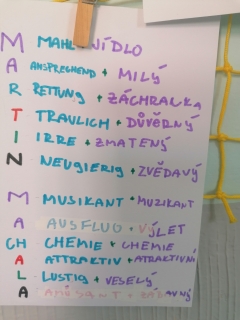 M MAHL NÍDLO
A ANSPRECHEND + MILÝ
R RETTUNG + ZÁCHRALKA
T TRAULICH + DŮVĚRNÝ
I IRRE + ZMATENÝ
N NEUGIERIG + ZVĚDAVÝ
M MUSIKANT + MUZIKANT
A AUSFLUG + VÝLET
CH CHEMIE + CHEMIE
A ATTRAKTIV + ATRAKTIVNÍ
L LUSTIG + VESELÝ
A AMÜSANT + ZÁBAVNÝ